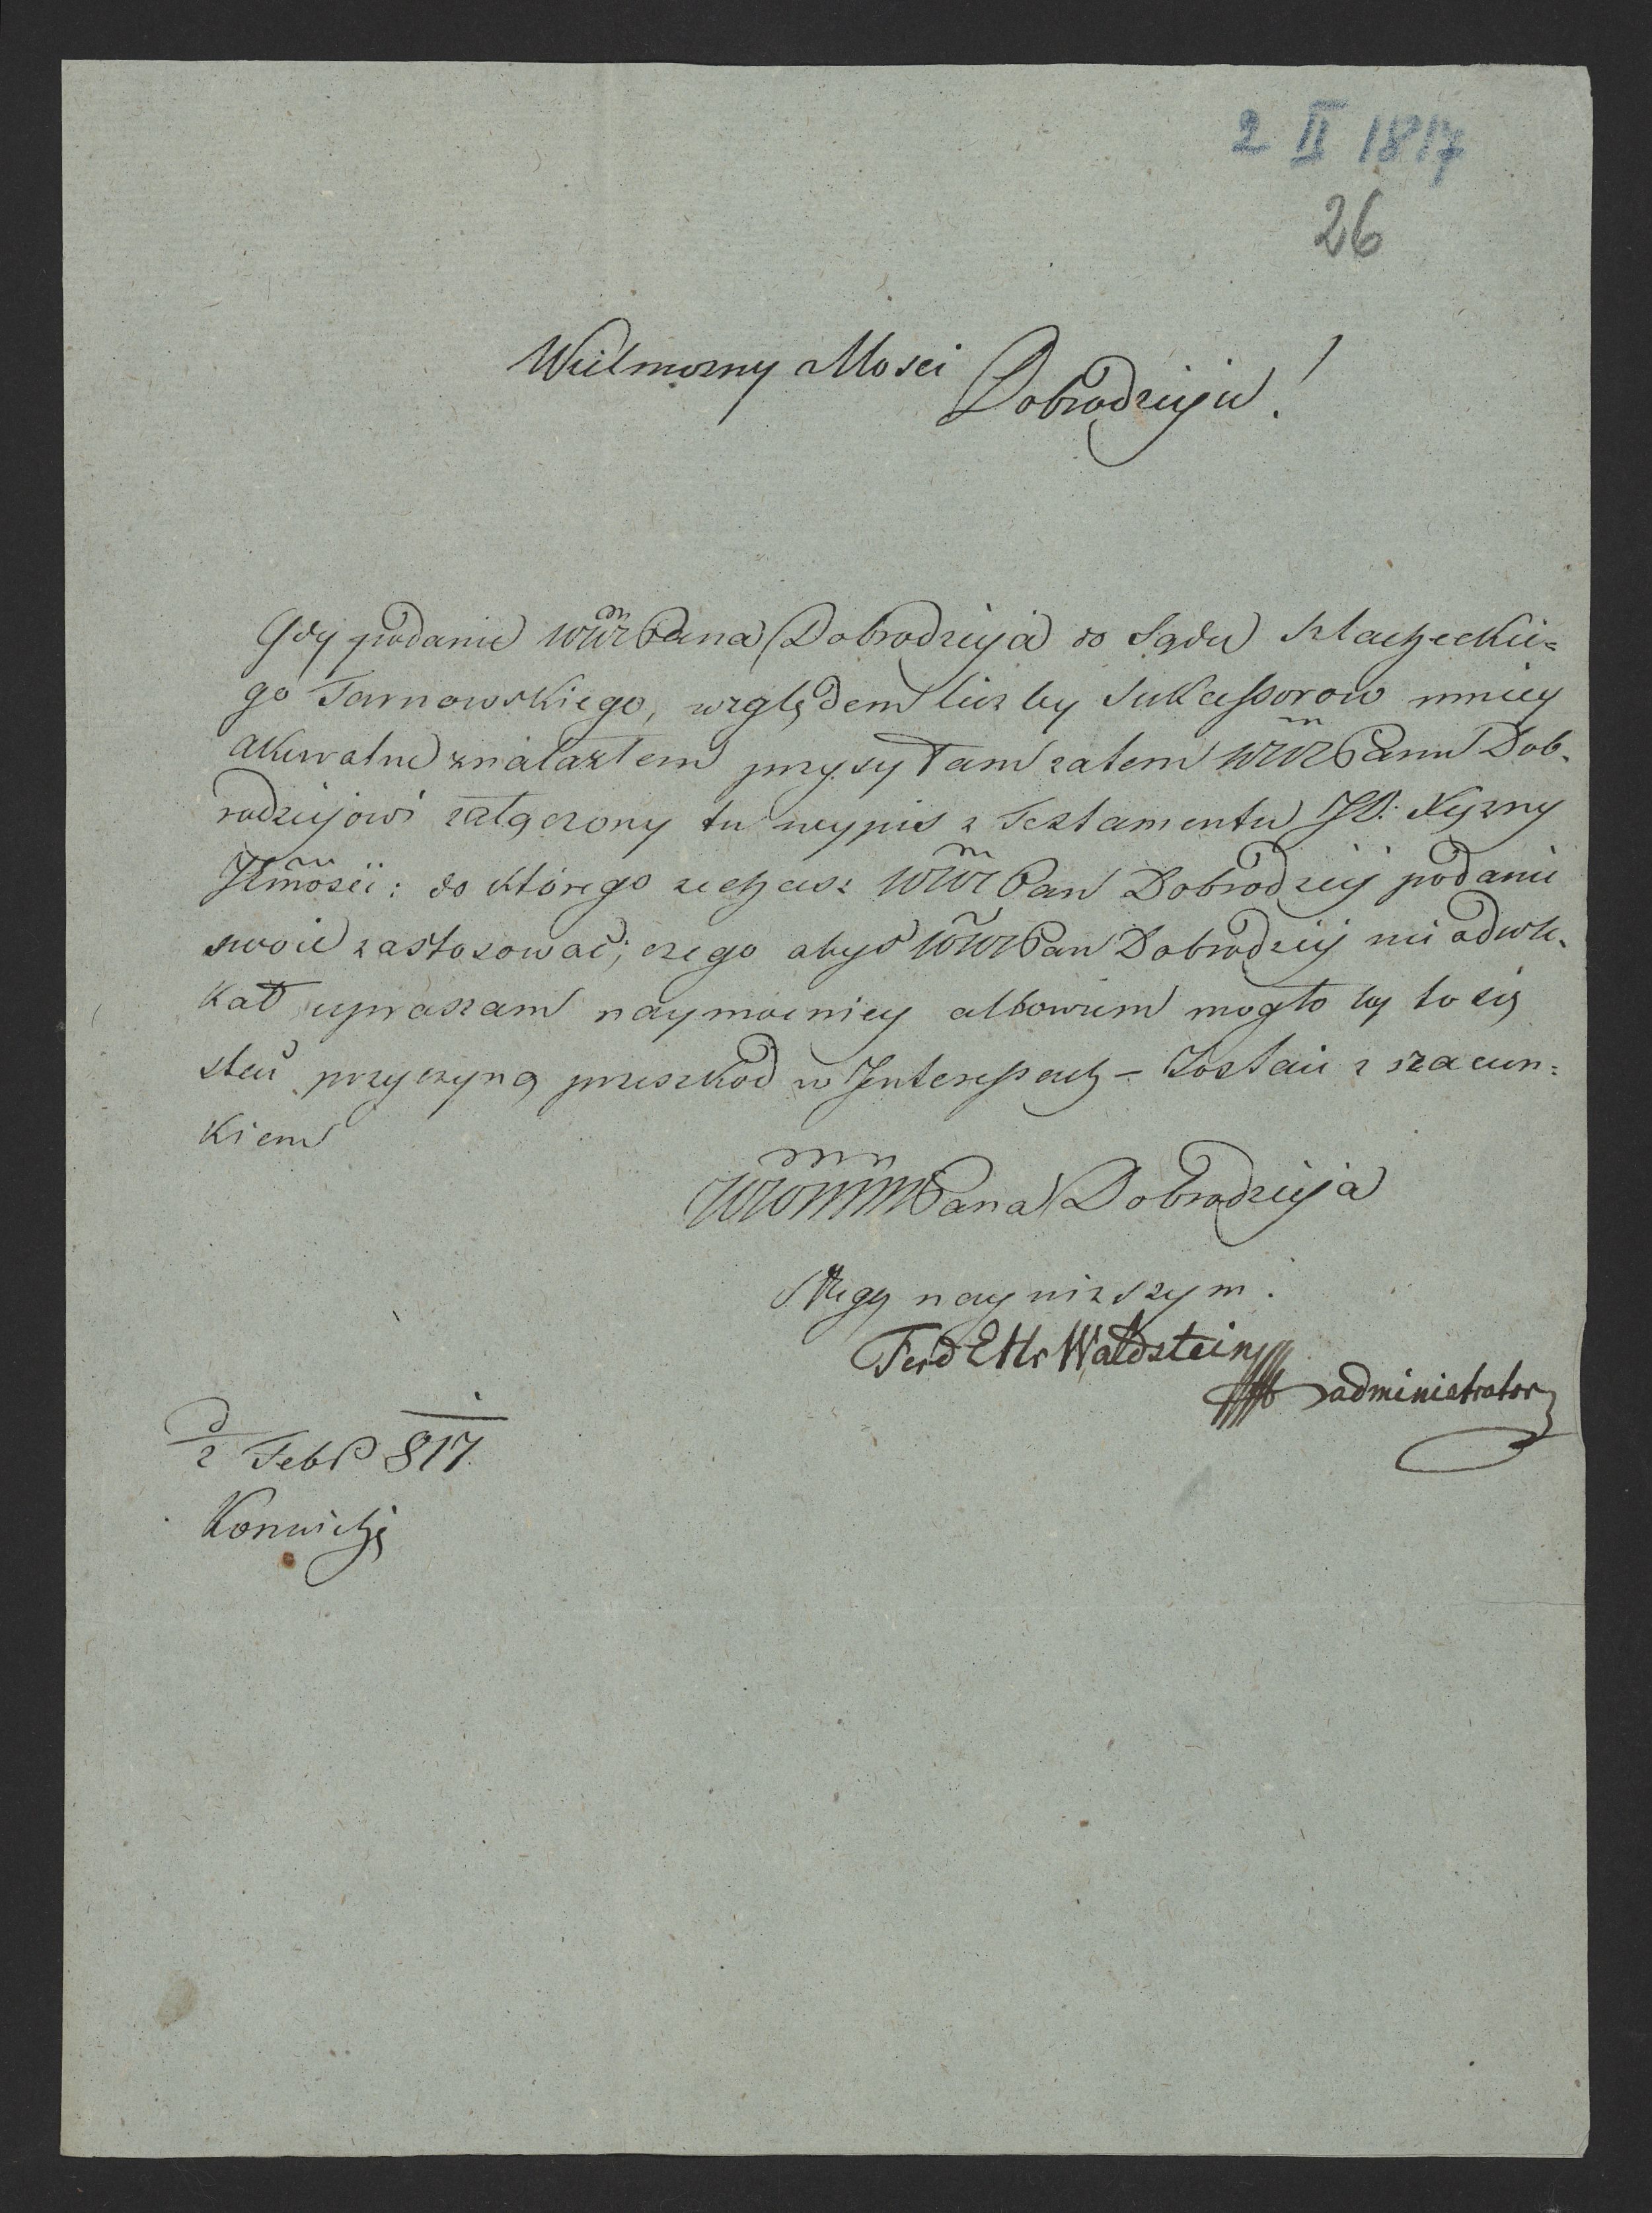 2 II 1817
26
Wielmozny Mosci
Dobrodzieju!
Gdy podanie WWPana Dobrodzieja do Sądu Szlacheckie=
go Tarnowskiego, względem liczby Sukcessorow mniey
akuratne znalazłem przysyłam zatem WWPanu Dob=
rodziejowi załączony tu wypis z Testamentu JO: Xiężny
Jmości: do którego zechcesz WWPan Dobrodziej podanie
swoie zastosować; czego abyś WWPan Dobrodziej nie odwle=
kał upraszam naymocniey albowiem mogło by to się
stać przyczyną przeszkod w Interessach – Zostaie z szacun=
kiem
WWMMPana Dobrodzieja
Sługą nayniższym.
Ferd Waldstein
administrator
d 2 Febr 817.